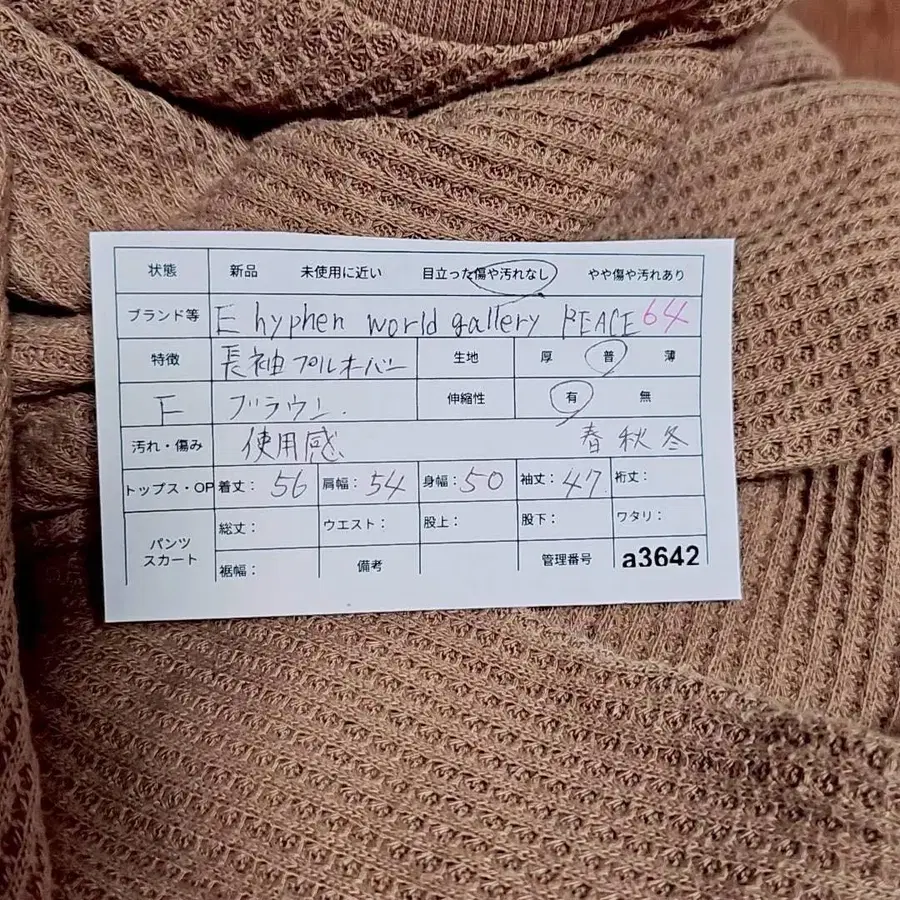 状態 新品 未使用に近い 目立った傷や汚れなし やや傷や汚れあり
ブランド等 E hyphen world gallery PEACE 64
特徴 長袖プルオーバー 生地 厚 普 薄
F ブラウン. 伸縮性 有 無
汚れ・傷み 使用感 春秋冬
トップス・OP 着丈: 56 肩幅: 54 身幅: 50 袖丈: 47 裄丈:
パンツ スカート 総丈: ウエスト: 股上: 股下: ワタリ:
裾幅: 備考 管理番号 a3642